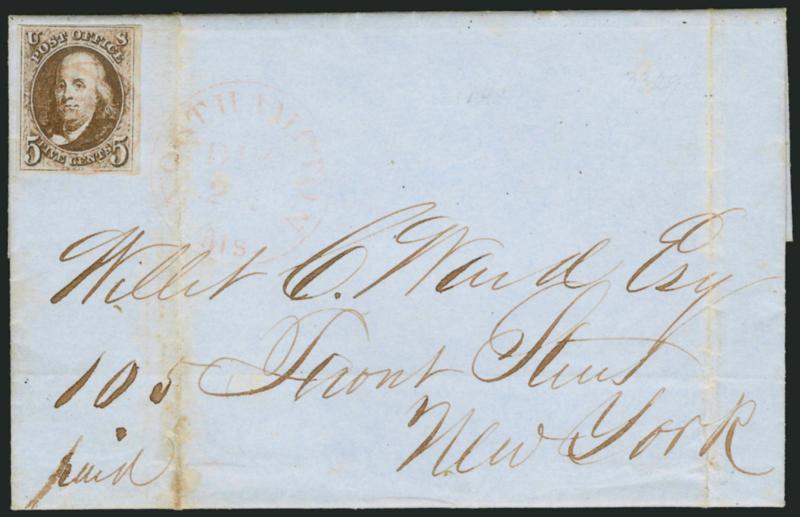 U S
POST OFFICE
5 FIVE CENTS 5
NORTHAMPTON
2
Willet C. Ward Esq
105 Front Street
New York
paid